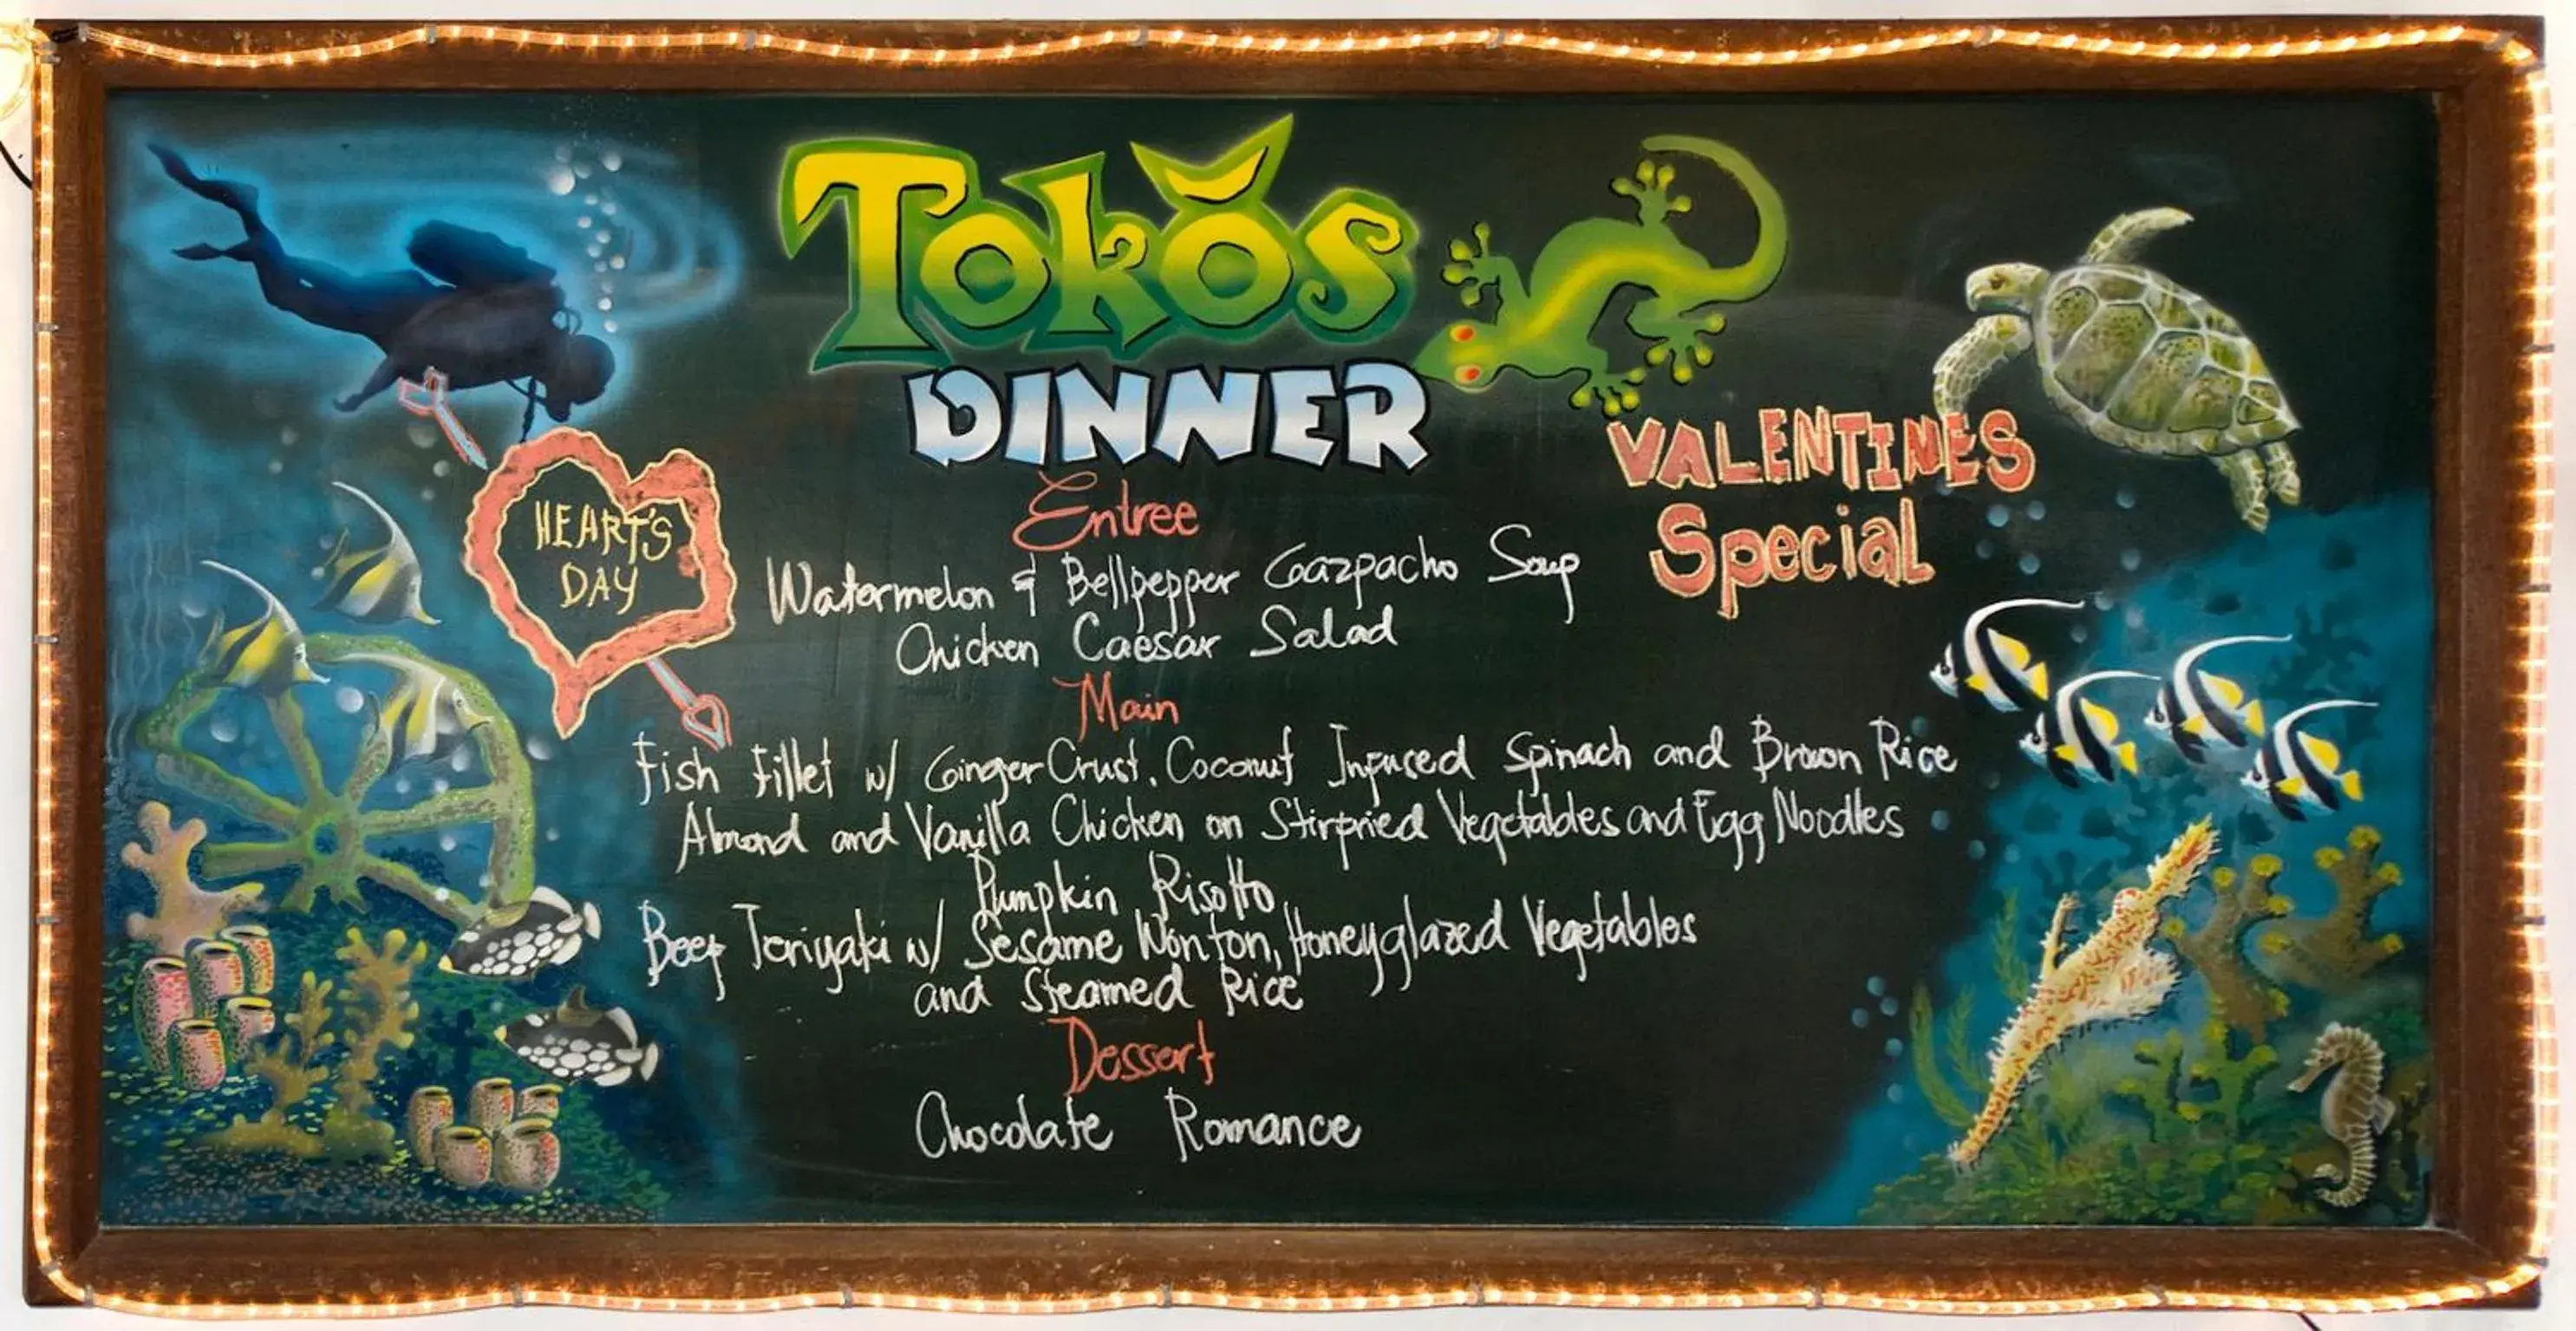 Tokŏs
DINNER
HEART'S
DAY
VALENTINES
Special
Entree
Watermelon & Bellpepper Gazpacho Soup
Chicken Caesar Salad
Main
Fish Fillet w/ Ginger Crust, Coconut Infused Spinach and Brown Rice
Almond and Vanilla Chicken on Stirfried Vegetables and Egg Noodles
Pumpkin Risotto
Beef Teriyaki w/ Sesame Wonton, Honeyglazed Vegetables
and Steamed Rice
Dessert
Chocolate Romance